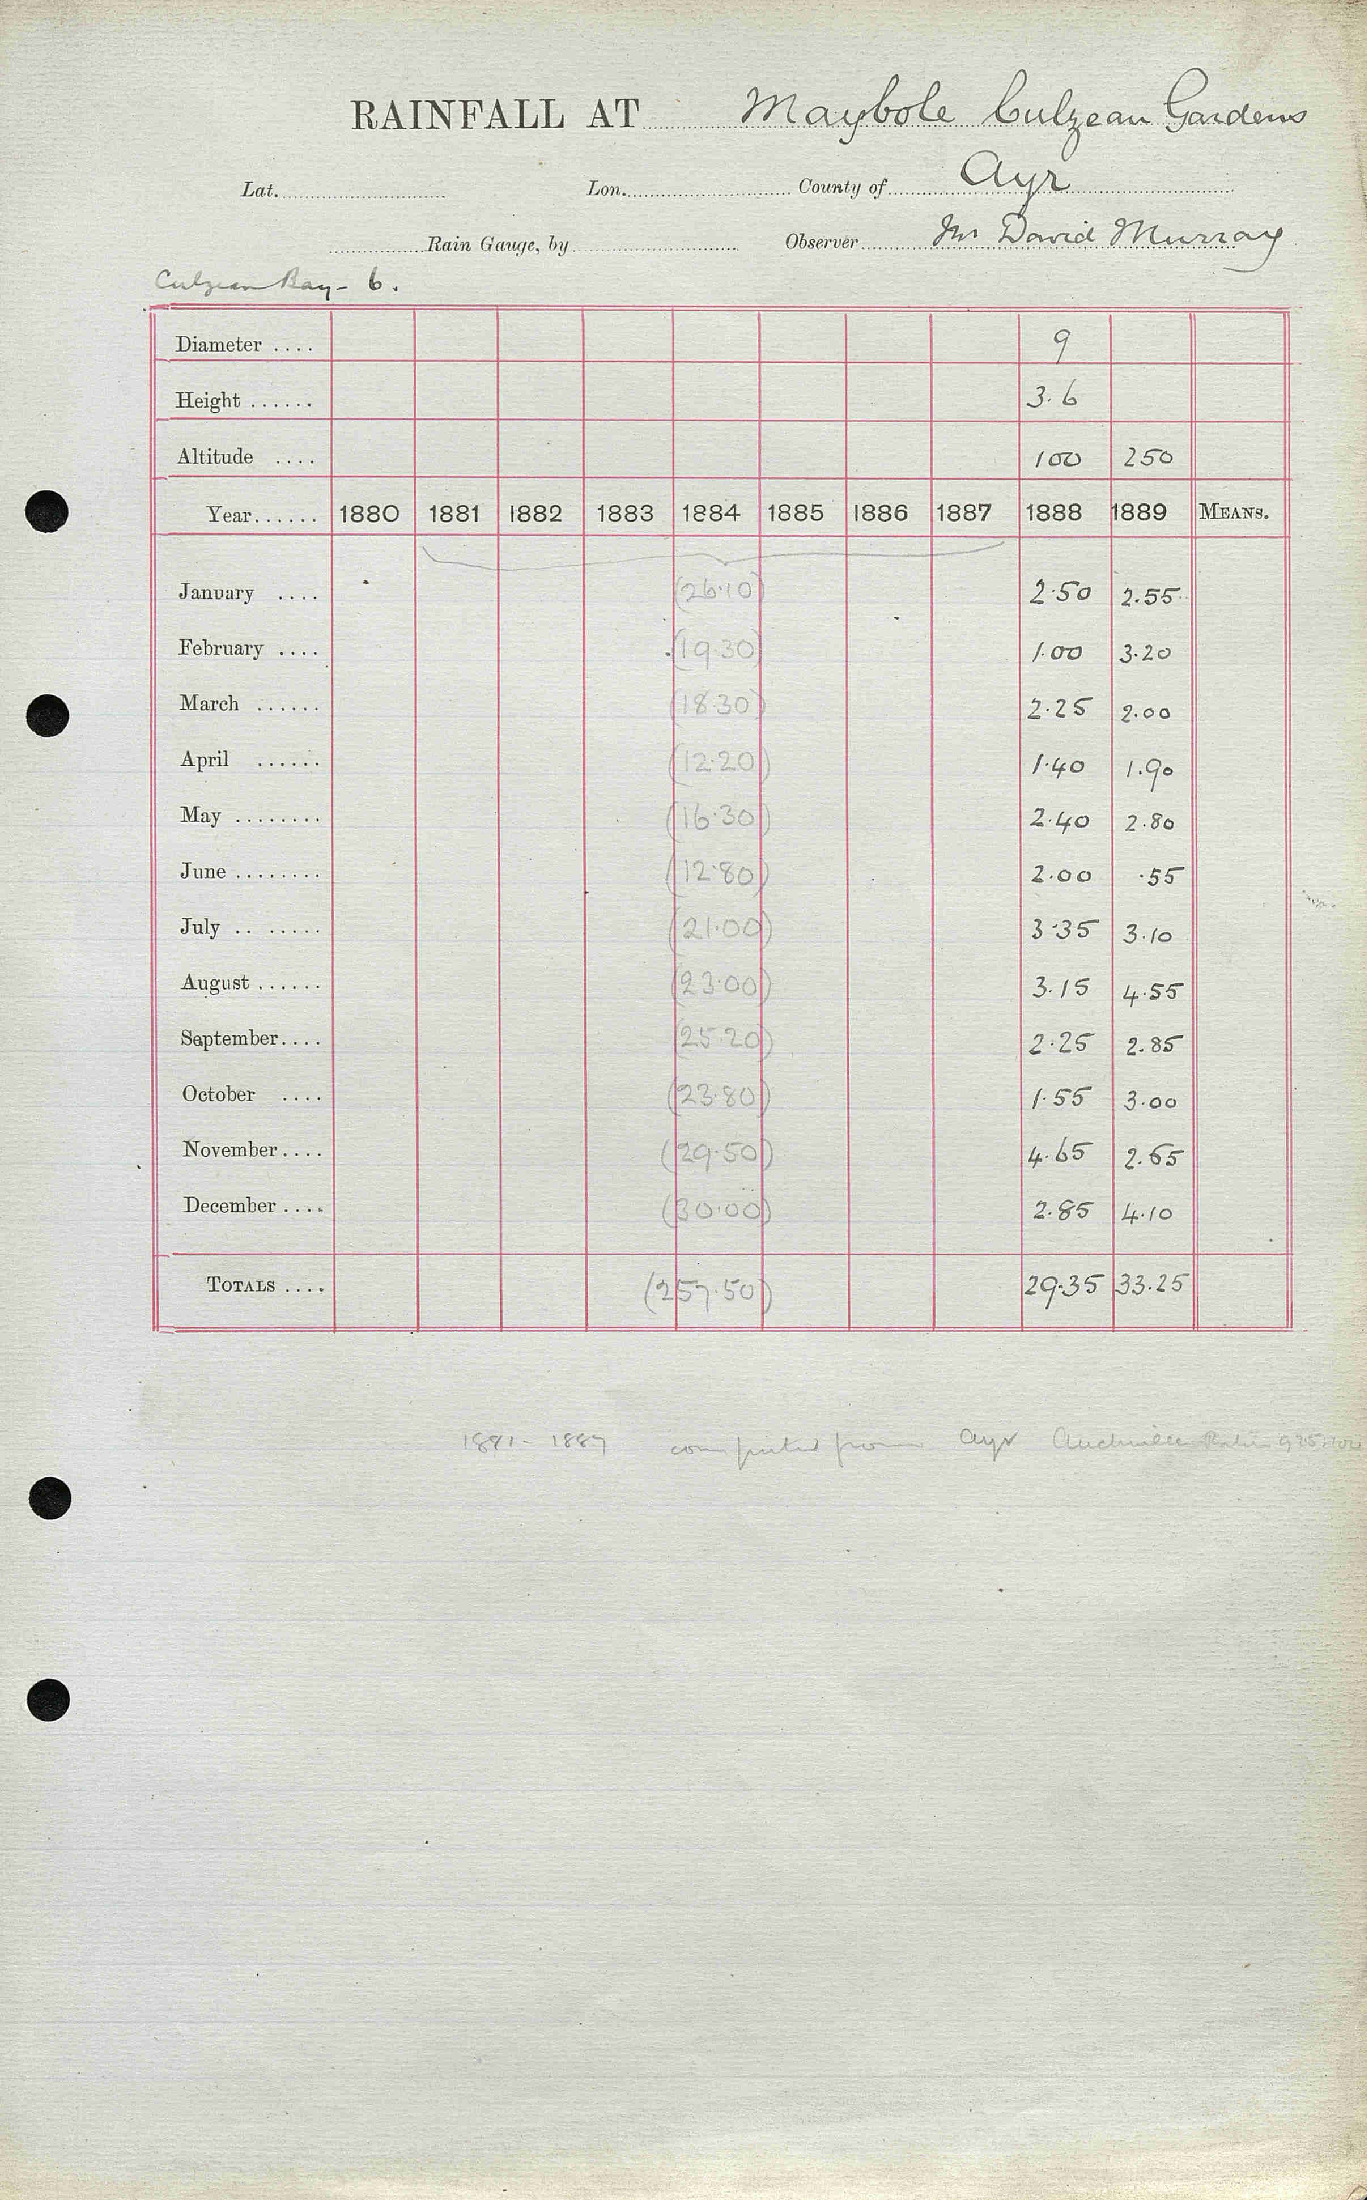 RAINFALL AT Maybole Culzean Gardens
Lat. Lon. County of Ayr
Rain Gauge, by Observer Mr David Murray
Culzean Bay - 6.
Diameter .... 9
Height ...... 3.6
Altitude .... 100 250
Year...... 1880 1881 1882 1883 1884 1885 1886 1887 1888 1889 MEANS.
January .... (26.10) 2.50 2.55
February .... (19.30) 1.00 3.20
March ...... (18.30) 2.25 2.00
April ...... (12.20) 1.40 1.90
May ........ (16.30) 2.40 2.80
June ........ (12.80) 2.00 .55
July .. ...... (21.00) 3.35 3.10
August ...... (23.00) 3.15 4.55
September.... (25.20) 2.25 2.85
October .... (23.80) 1.55 3.00
November.... (29.50) 4.65 2.65
December .... (30.00) 2.85 4.10
TOTALS .... (257.50) 29.35 33.25
1881 - 1887 computed from Ayr